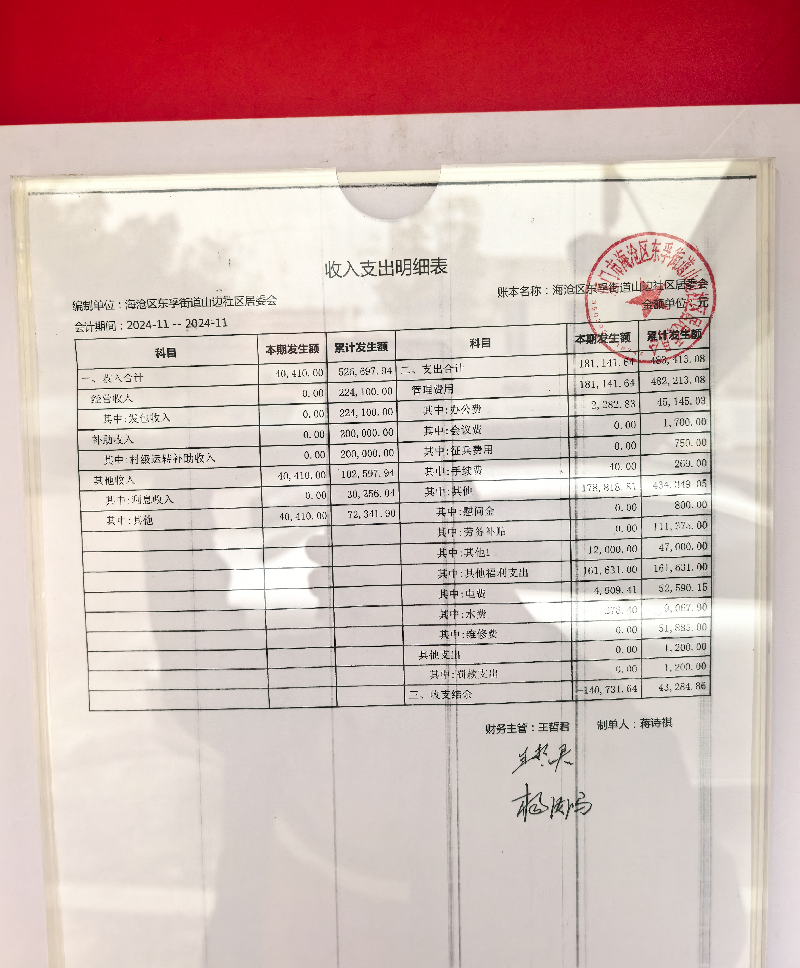 收入支出明细表
编制单位：海沧区东孚街道山边社区居委会 账本名称：海沧区东孚街道山边社区居委会
会计期间：2024-11 -- 2024-11 金额单位：元
科目 本期发生额 累计发生额 科目 本期发生额 累计发生额
一、收入合计 40,410.00 526,697.94 二、支出合计 181,141.64 483,413.08
经营收入 0.00 224,100.00 管理费用 181,141.64 482,213.08
其中:发包收入 0.00 224,100.00 其中:办公费 2,282.83 45,145.03
补助收入 0.00 200,000.00 其中:会议费 0.00 1,700.00
其中:村级运转补助收入 0.00 200,000.00 其中:征兵费用 0.00 750.00
其他收入 40,410.00 102,597.94 其中:手续费 40.00 269.00
其中:利息收入 0.00 30,256.04 其中:其他 178,818.81 434,349.05
其中:其他 40,410.00 72,341.90 其中:慰问金 0.00 800.00
其中:劳务补贴 0.00 111,375.00
其中:其他1 12,000.00 47,000.00
其中:其他福利支出 161,631.00 161,631.00
其中:电费 4,909.41 52,590.15
其中:水费 278.40
其中:维修费 0.00 51,885.00
其他支出 0.00 1,200.00
其中:罚款支出 0.00 1,200.00
三、收支结余 -140,731.64 43,284.86
财务主管：王哲君 制单人：蒋诗祺
王哲君